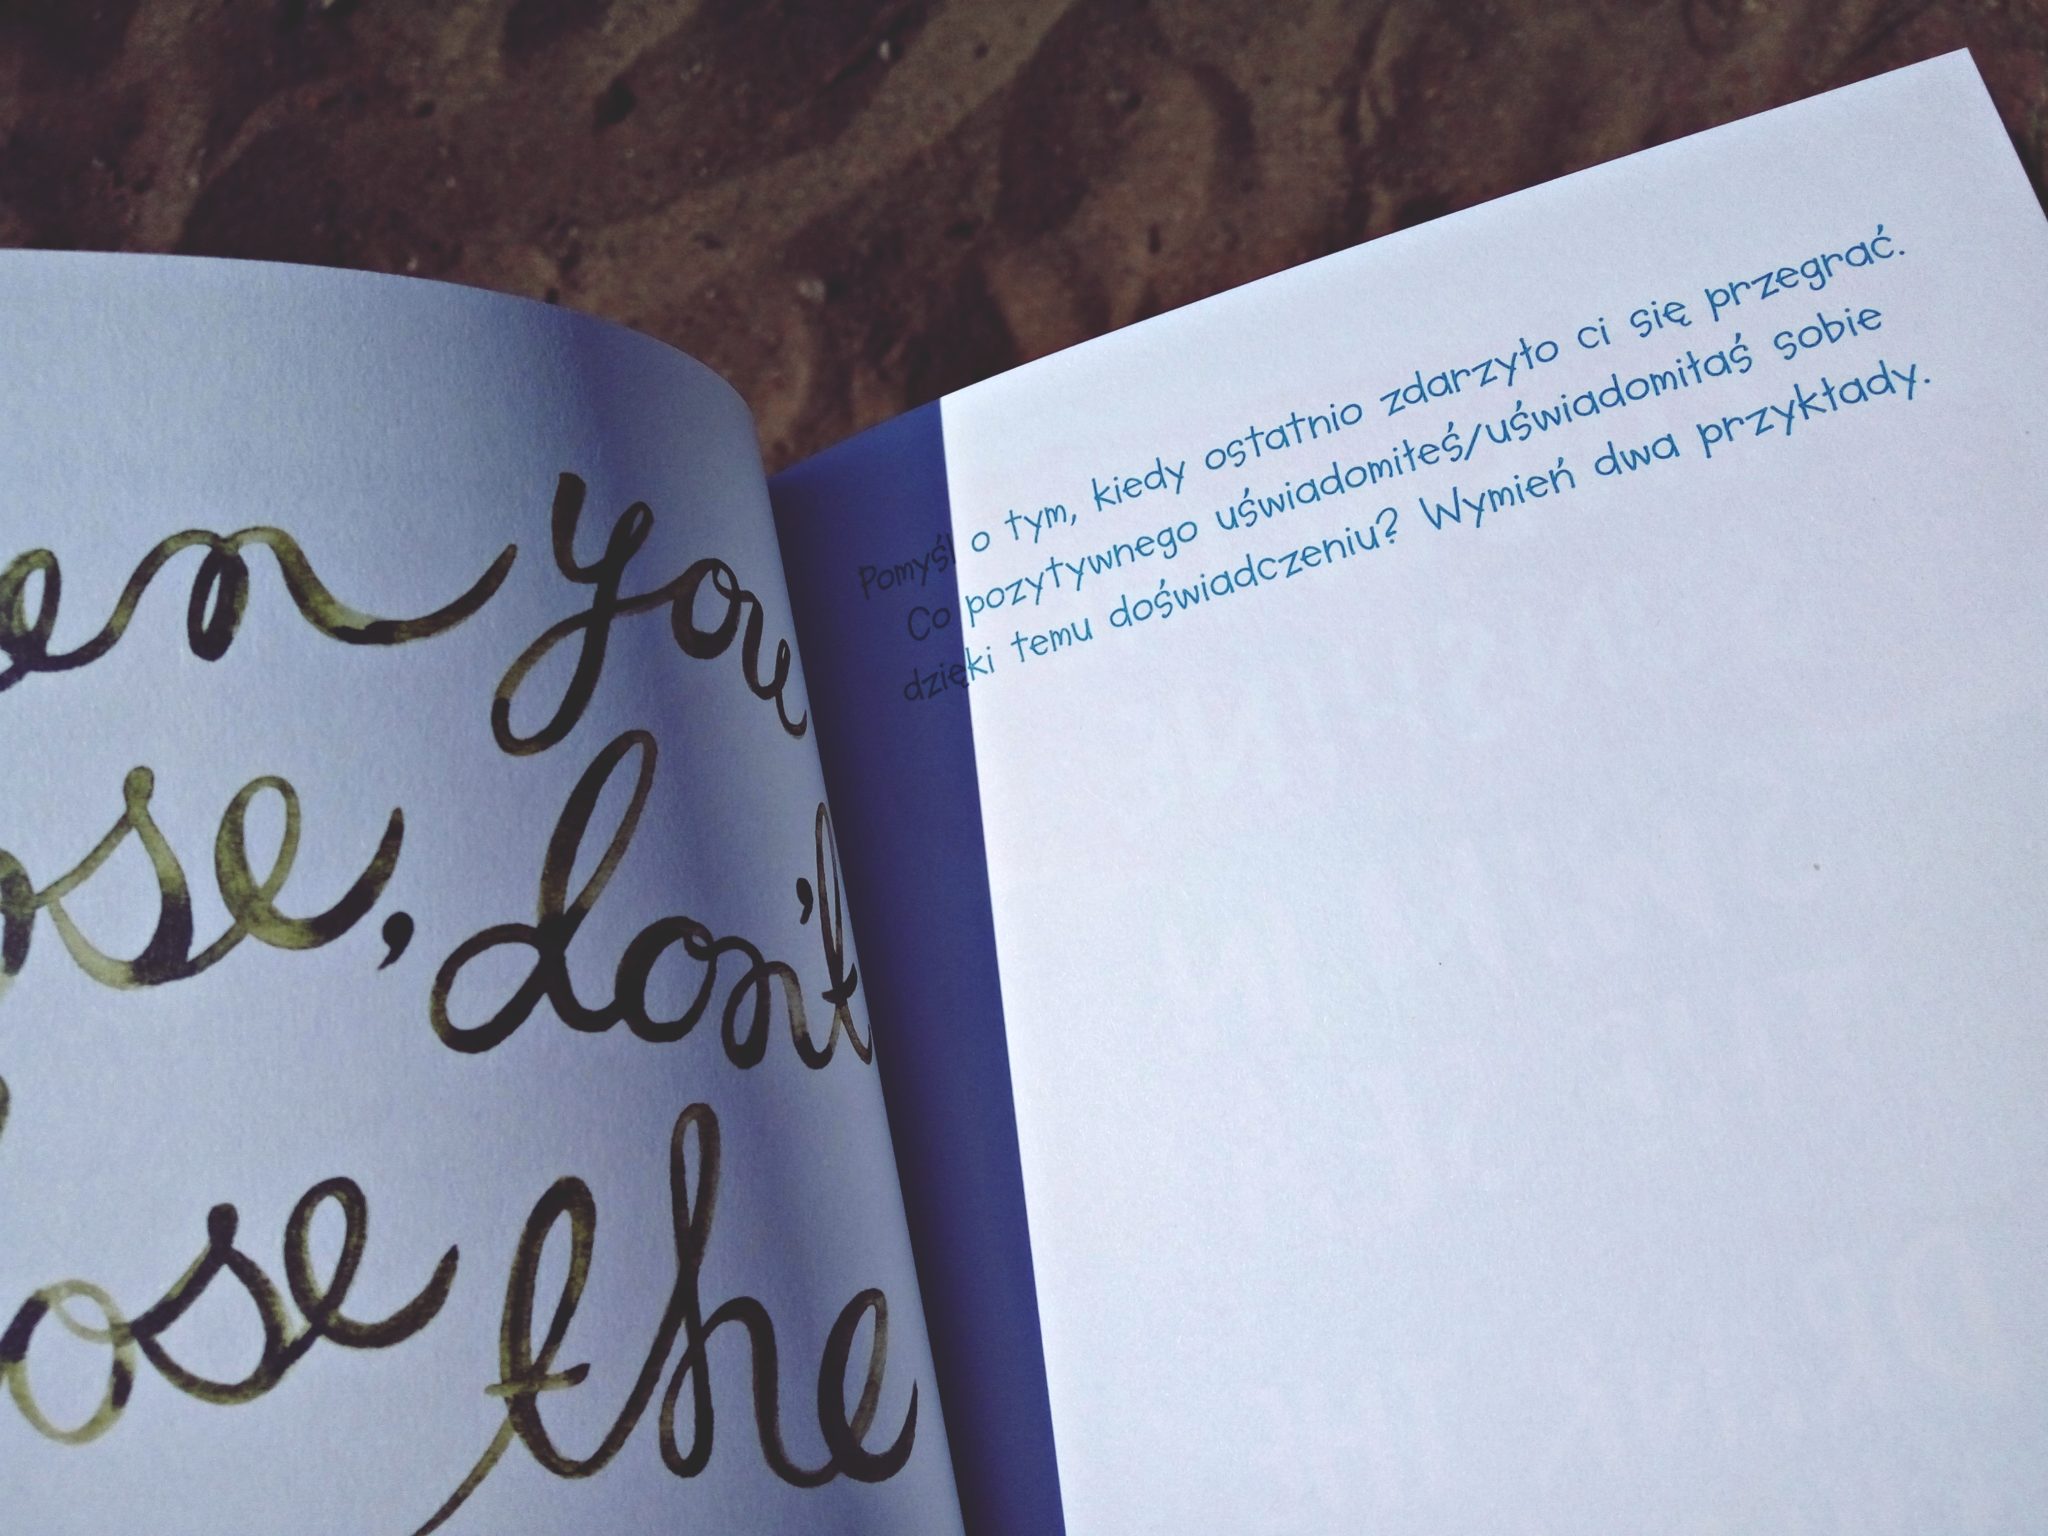 you
don't
the
Pomyśl o tym, kiedy ostatnio zdarzyło ci się przegrać.
Co pozytywnego uświadomiłeś/uświadomiłaś sobie
dzięki temu doświadczeniu? Wymień dwa przykłady.